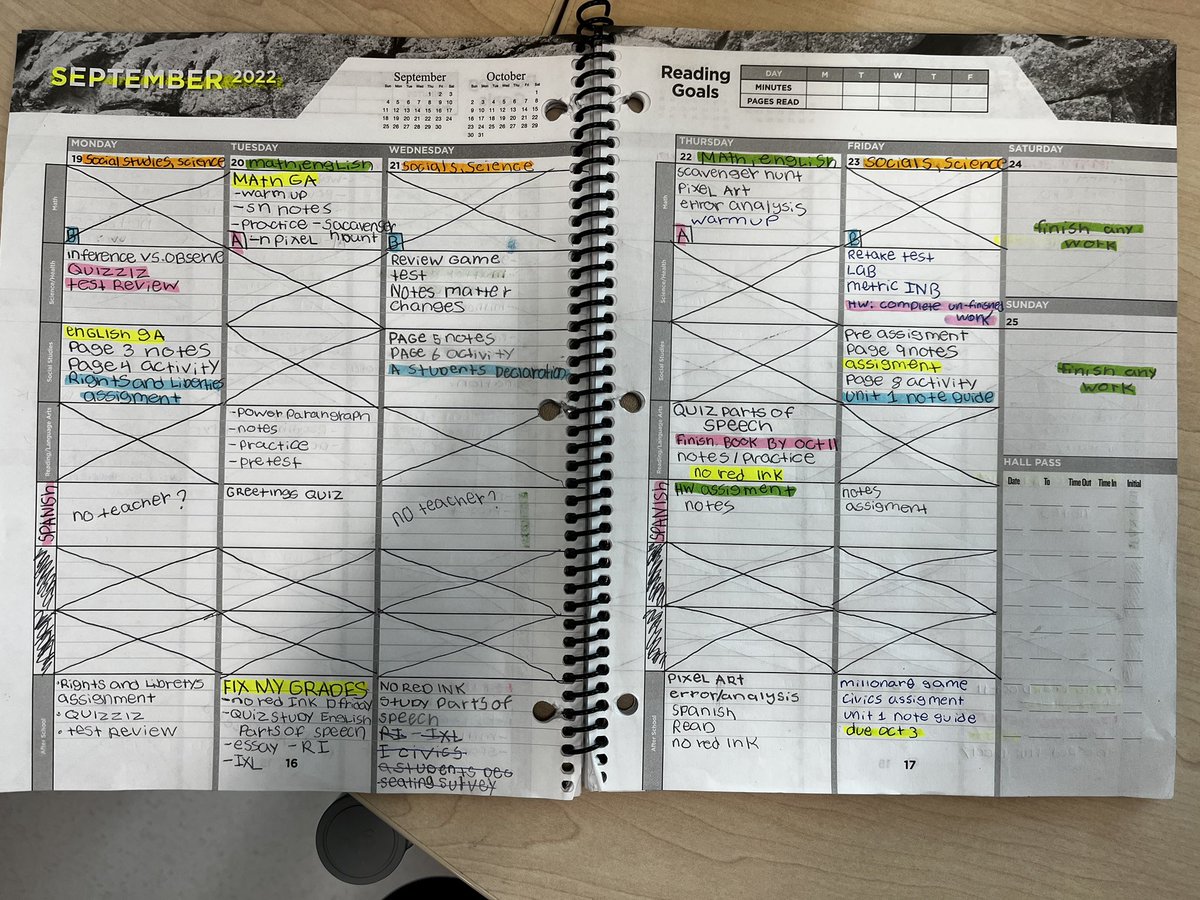 SEPTEMBER 2022
September
Sun Mon Tue Wed Thu Fri Sat
1 2 3
4 5 6 7 8 9 10
11 12 13 14 15 16 17
18 19 20 21 22 23 24
25 26 27 28 29 30
October
Sun Mon Tue Wed Thu Fri Sat
1
2 3 4 5 6 7 8
9 10 11 12 13 14 15
16 17 18 19 20 21 22
23 24 25 26 27 28 29
30 31
MONDAY
19 Social studies, science
B
inference vs. observe
QUIZZIZ
test Review
english 9A
Page 3 notes
Page 4 activity
Rights and Liberties
assigment
no teacher?
• Rights and Libretys
assignment
• QUIZZIZ
• test Review
TUESDAY
20 math, english
MAth GA
-warm up
-sn notes
-practice - scacavenger
A -n pixel hount
-power paragraph
-notes
-practice
-pretest
Greetings QUIZ
FIX MY GRADES
-no red Ink
-QUIZ STUDY English
Parts of speech
-essay -RI
-IXL
16
WEDNESDAY
21 socials, science
B
Review Game
test
Notes matter
changes
PAGE 5 notes
PAGE 6 activity
A Students Declaration
no teacher?
NO RED INK
Study Parts of
speech
RI - IXL
I civics
a students Dec
seating survey
Math
Science/Health
Social Studies
Reading/Language Arts
SPANISH
After School
Reading
Goals
DAY M T W T F
MINUTES
PAGES READ
THURSDAY
22 MAth, english
scavenger hunt
Pixel Art
error analysis
warmup
A
QUIZ Parts of
speech
finish BOOK BY OCT 11
notes/practice
no red ink
HW assigment
notes
PIXEL ART
error/analysis
spanish
Read
no red ink
FRIDAY
23 Socials, Science
B
Retake test
LAB
metric INB
HW: complete un-finished
work
Pre assigment
Page 9 notes
assigment
Page 8 activity
unit 1 note guide
notes
assigment
millonare game
Civics assigment
unit 1 note guide
due oct 3
17
SATURDAY
24
finish any
work
SUNDAY
25
finish any
work
HALL PASS
Date To Time Out Time In Initial
Math
Science/Health
Social Studies
Reading/Language Arts
SPANISH
After School